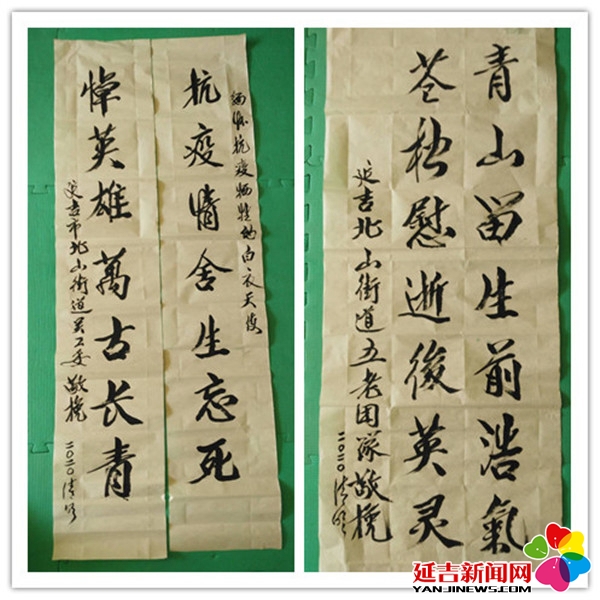 缅怀抗疫牺牲的白衣天使
抗疫情舍生忘死
悼英雄萬古长青
延吉市北山街道关工委敬挽
二〇二〇清明
青山留生前浩氣
苍松慰逝後英灵
延吉北山街道五老团队敬挽
二〇二〇清明
延吉新闻网
YANJINEWS.COM